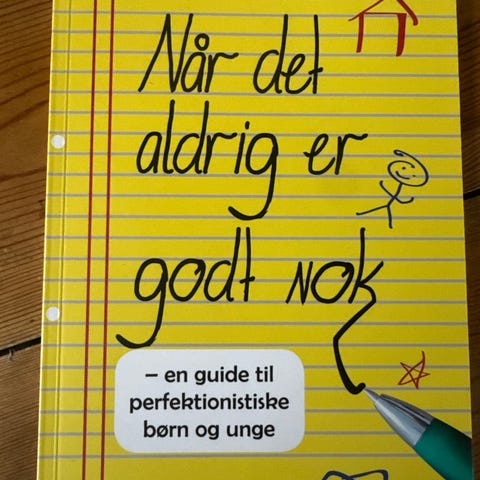 Når det
aldrig er
godt nok
– en guide til
perfektionistiske
børn og unge